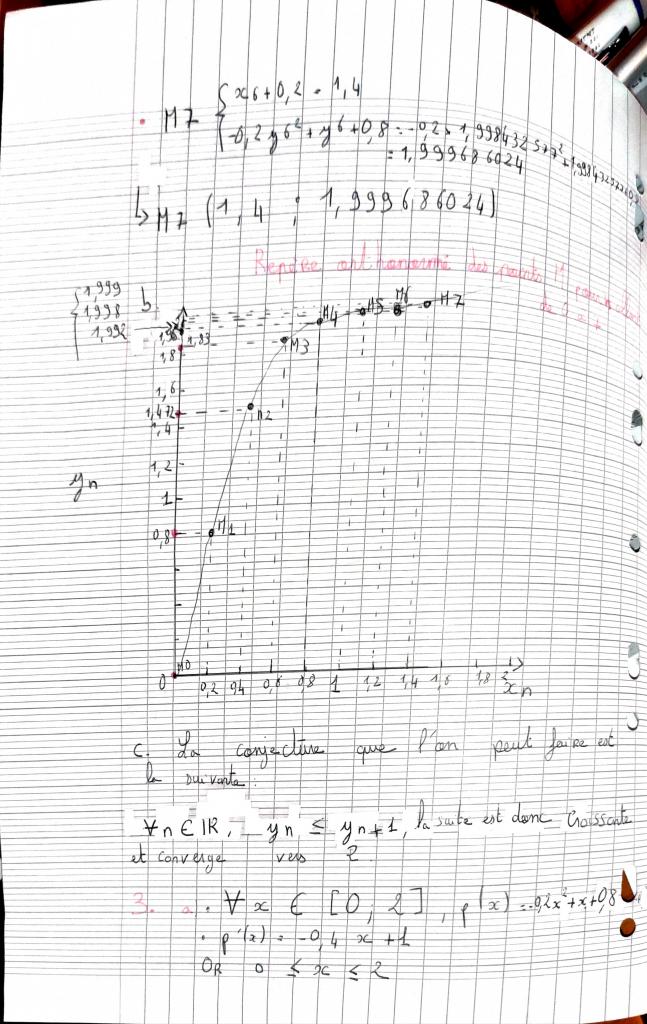 • M7 { x6 + 0,2 = 1,4
-0,2 y6² + y6 + 0,8 = -0,2 × 1,998432577² + 1,998432577+0,8
= 1,999686024
↳ M7 (1,4 ; 1,999686024)
Repère orthonormé des points M pour n allant
de 0 a 7
b
1,999
1,998
1,992
1,96
1,83
1,8
1,6
1,472
1,4
1,2
1
0,8
yn
0
M0
M1
M2
M3
M4
M5
M6
M7
0,2 0,4 0,6 0,8 1 1,2 1,4 1,6 1,8 2
xn
c. La conjecture que l'on peut faire est
la suivante :
∀n ∈ IR, yn ≤ yn+1, la suite est donc croissante
et converge vers 2.
3. a. • ∀ x ∈ [0 ; 2], p(x) = -0,2x²+x+0,8
• p'(x) = -0,4 x + 1
OR 0 ≤ x ≤ 2